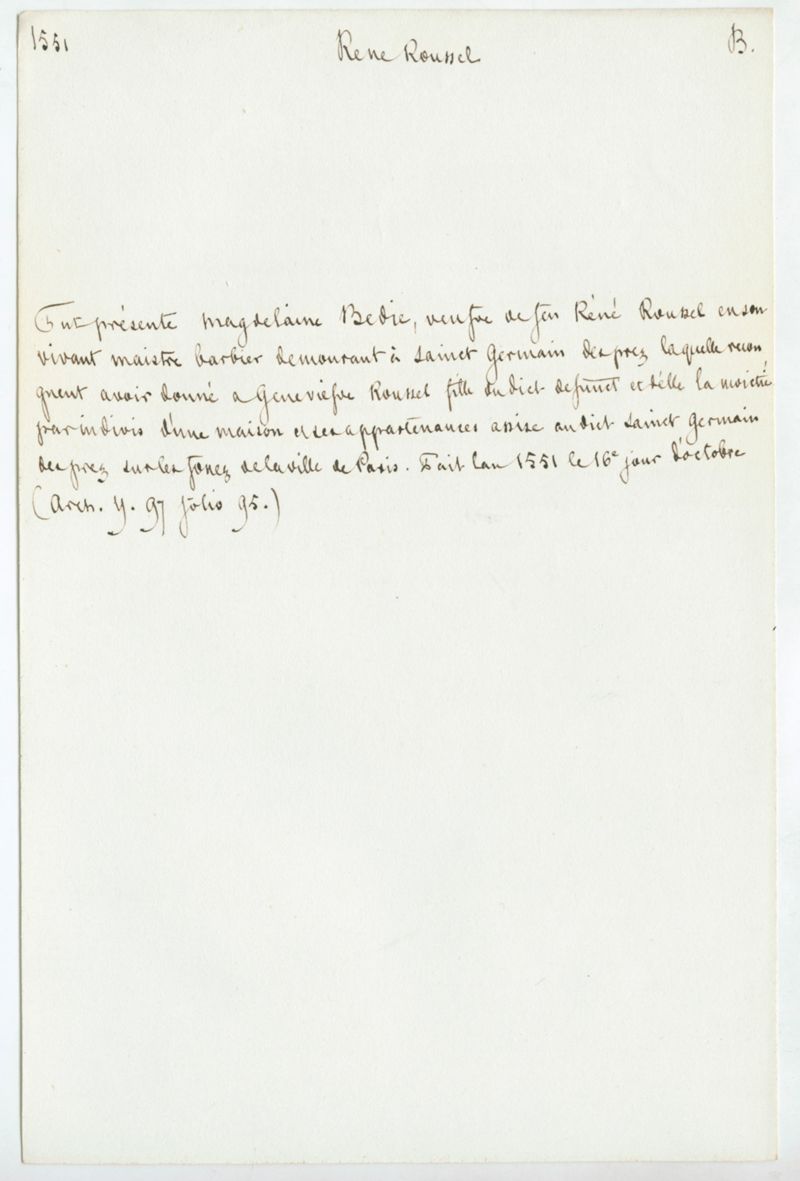 1551
Rene Roussel
B.
Fut présente Magdelaine Bedie, veufve de feu Réné Roussel en son
vivant maistre barbier demourant à Sainct Germain des prez laquelle recon
gneut avoir donné a Geneviefve Roussel fille du dict defunct et d'elle la moictié
par indivis d'une maison et ses appartenances assise au dict Sainct Germain
des prez sur les fossez de la ville de Paris. Fait l'an 1551 le 16e jour d'octobre
(Arch. Y. 97 folio 95.)